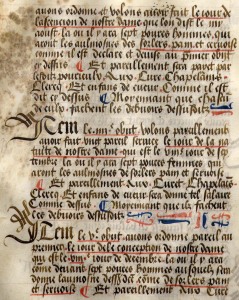 auons ordonne et Volons auoir fait le iour de
lascencion de nostre dame que lon dist le my
aoust la ou il y ara sept poures hommes qui
auront les aulmosnes des sollers pain et cervoise
comme il est declare et deuise au premier obit
dessus Et pareillement sera payet par
Cure Chapelains
Clercq Et enfans de cueur Comme il est
dit dessus Moyennant que chascun
facent les debuoirs dessusdits
Item le iiije obit Volons pareillement
auoir fait tout pareil seruice le iour de la na
de nostre dame qui est le viije iour de sep
tembre la ou il y ara sept poures femmes qui
aront les aulmosnes de sollers pain et cervoise
Et pareillement Aux Curet Chapelains
Clercq Et enfans de cueur sera donne tel salaire
Comme dessus Moyennant que ilz facent
les debuoirs dessusdits
Item le ve obit auons ordonne pareil au
premier le iour de le conception de nostre dame
qui est le viije iour de decembre la ou il y ara
come deuant sept poures hommes ausquelz sera
donne laulmosne des sollers pain et
cervoise Et pareillement Aux Cure